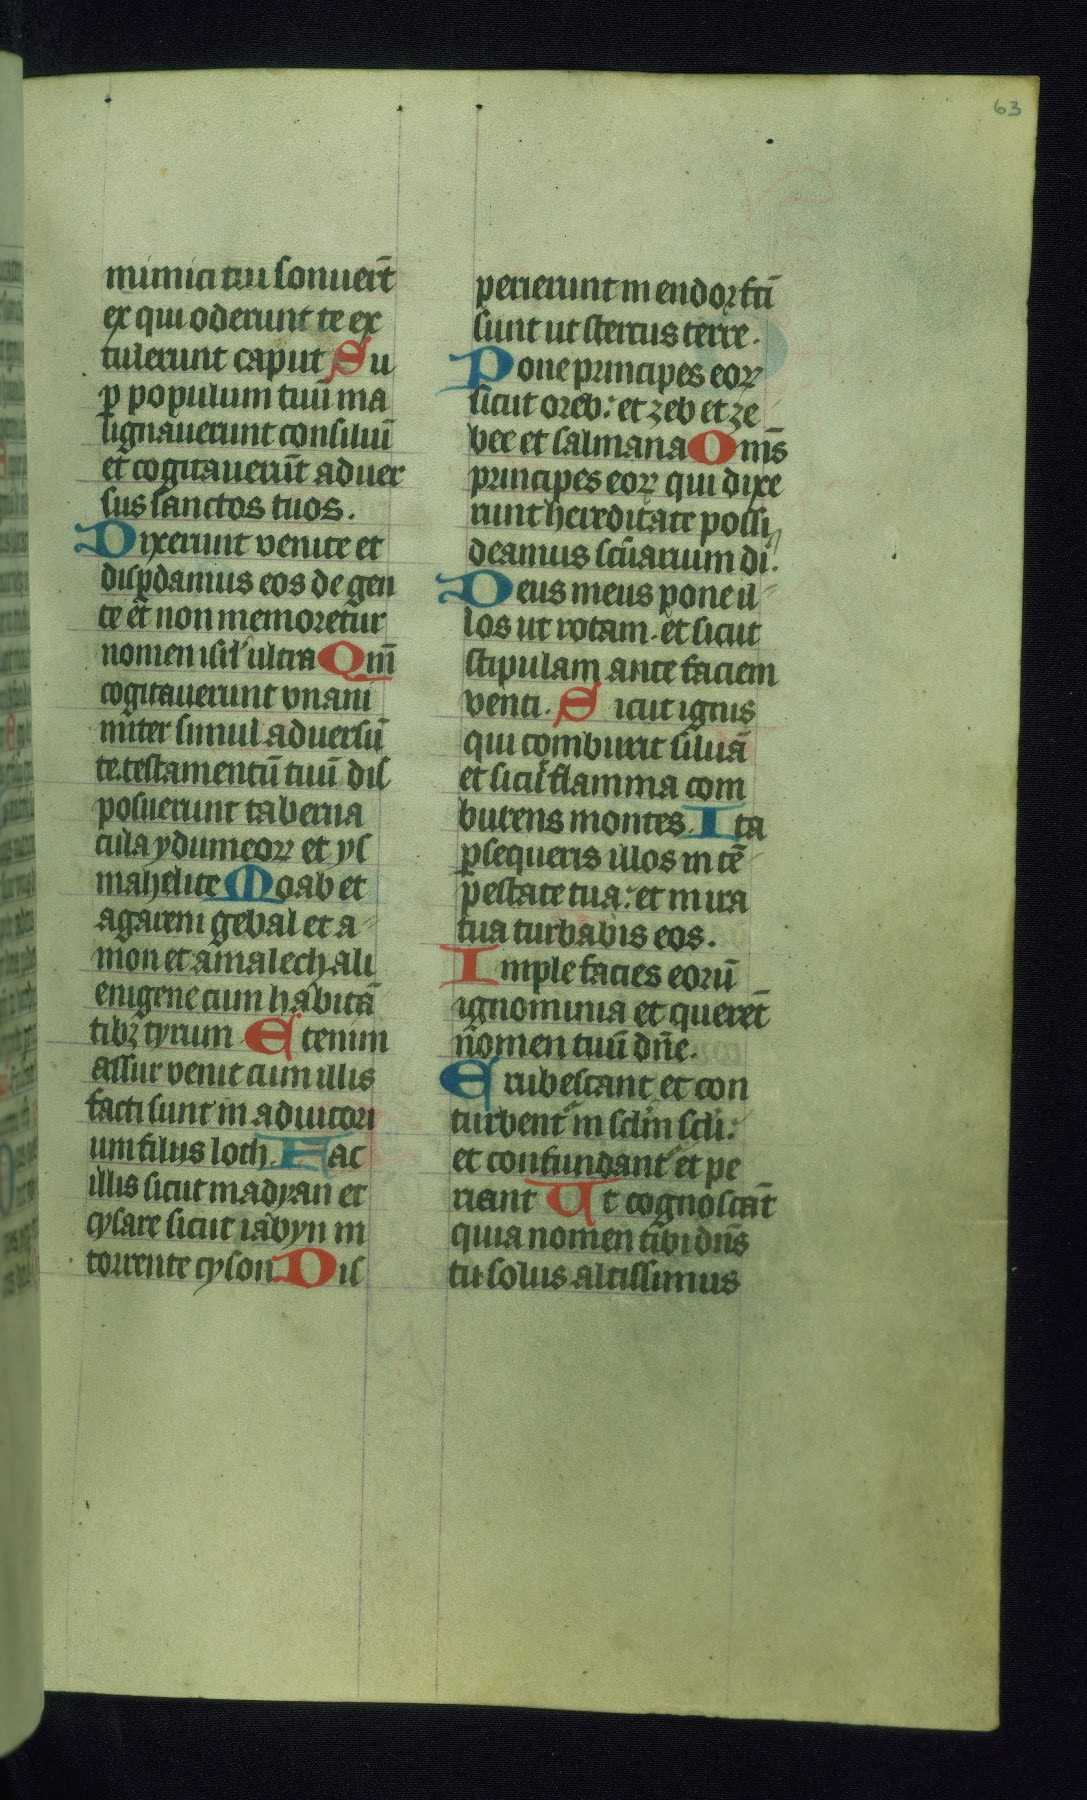 63
inimici tui sonuert̄
ex qui oderunt te ex
tulerunt caput Su
ꝑ populum tuū ma
lignauerunt consiliū
et cogitauerūt aduer
sus sanctos tuos.
Dixerunt venite et
disꝑdamus eos de gen
te et non memoretur
nomen isrl' ultra Qm̄
cogitauerunt vnani
miter simul aduersū
te.testamentū tuū dis
posuerunt taberna
cula ydumeoꝝ et ys
mahelite Moab et
agareni gebal et a
mon et amalech.ali
enigene cum habitā
tibꝫ tyrum Etenim
assur venit cum illis
facti sunt in adiutori
um filijs loth. Fac
illis sicut madyan et
cysare sicut iabyn in
torrente cyson Dis
perierunt in endoꝝ fcī
sunt ut stercus terre.
Pone principes eoꝝ
sicut oreb: et zeb et ze
bee et salmana Om̄s
principes eoꝝ qui dixe
runt hereditate possi
deamus scūarium di.
Deus meus pone il
los ut rotam. et sicut
stipulam ante faciem
venti. Sicut ignis
qui comburit siluā
et sicut flamma com
burens montes. Ita
ꝑsequeris illos in tē
pestate tua: et in ira
tua turbabis eos.
Imple facies eorū
ignominia et queret̄
nomen tuū dn̄e.
Erubescant et con
turbent' in sclm̄ scli:
et confundant' et pe
reant Ut cognoscāt
quia nomen tibi dn̄s
tu solus altissimus